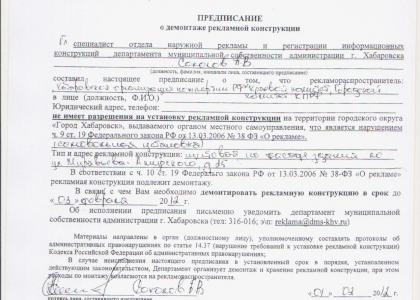 ПРЕДПИСАНИЕ
о демонтаже рекламной конструкции
Гл специалист отдела наружной рекламы и регистрации информационных
конструкций департамента муниципальной собственности администрации г. Хабаровска
Соколов АВ
(должность, фамилия, инициалы лица, составившего предписание)
составил настоящее предписание о том, что рекламораспространитель:
Хабаровская организация КПРФ
в лице (должность, Ф.И.О.)
Юридический адрес, телефон:
не имеет разрешения на установку рекламной конструкции на территории городского округа
«Город Хабаровск», выдаваемого органом местного самоуправления, что является нарушением
ч. 9 ст. 19 Федерального закона РФ от 13.03.2006 № 38 ФЗ «О рекламе».
(самовольная установка)
Тип и адрес рекламной конструкции: щитовой по фасаду здания по
ул Муравьева-Амурского
В соответствии с ч. 10 ст. 19 Федерального закона РФ от 13.03.2006 № 38-ФЗ «О рекламе»
рекламная конструкция подлежит демонтажу.
В связи с чем Вам необходимо демонтировать рекламную конструкцию в срок до
«03» февраля 2012 г.
Об исполнении предписания письменно уведомить департамент муниципальной
собственности администрации г. Хабаровска (тел: 316-016; э/п: reklama@dms-khv.ru)
Материалы направлены в орган (должностному лицу), уполномоченному составлять протоколы об
административных правонарушениях по статье 14.37 (нарушение требований к установке рекламной конструкции)
Кодекса Российской Федерации об административных правонарушениях.
В случае неисполнения настоящего предписания в установленный срок в порядке, установленном
действующим законодательством, Департамент организует демонтаж и хранение рекламной конструкции, при этом
расходы по монтажу возлагаются на рекламораспространителя.
Соколов АВ
2012 г
подпись лица, составившего предписание